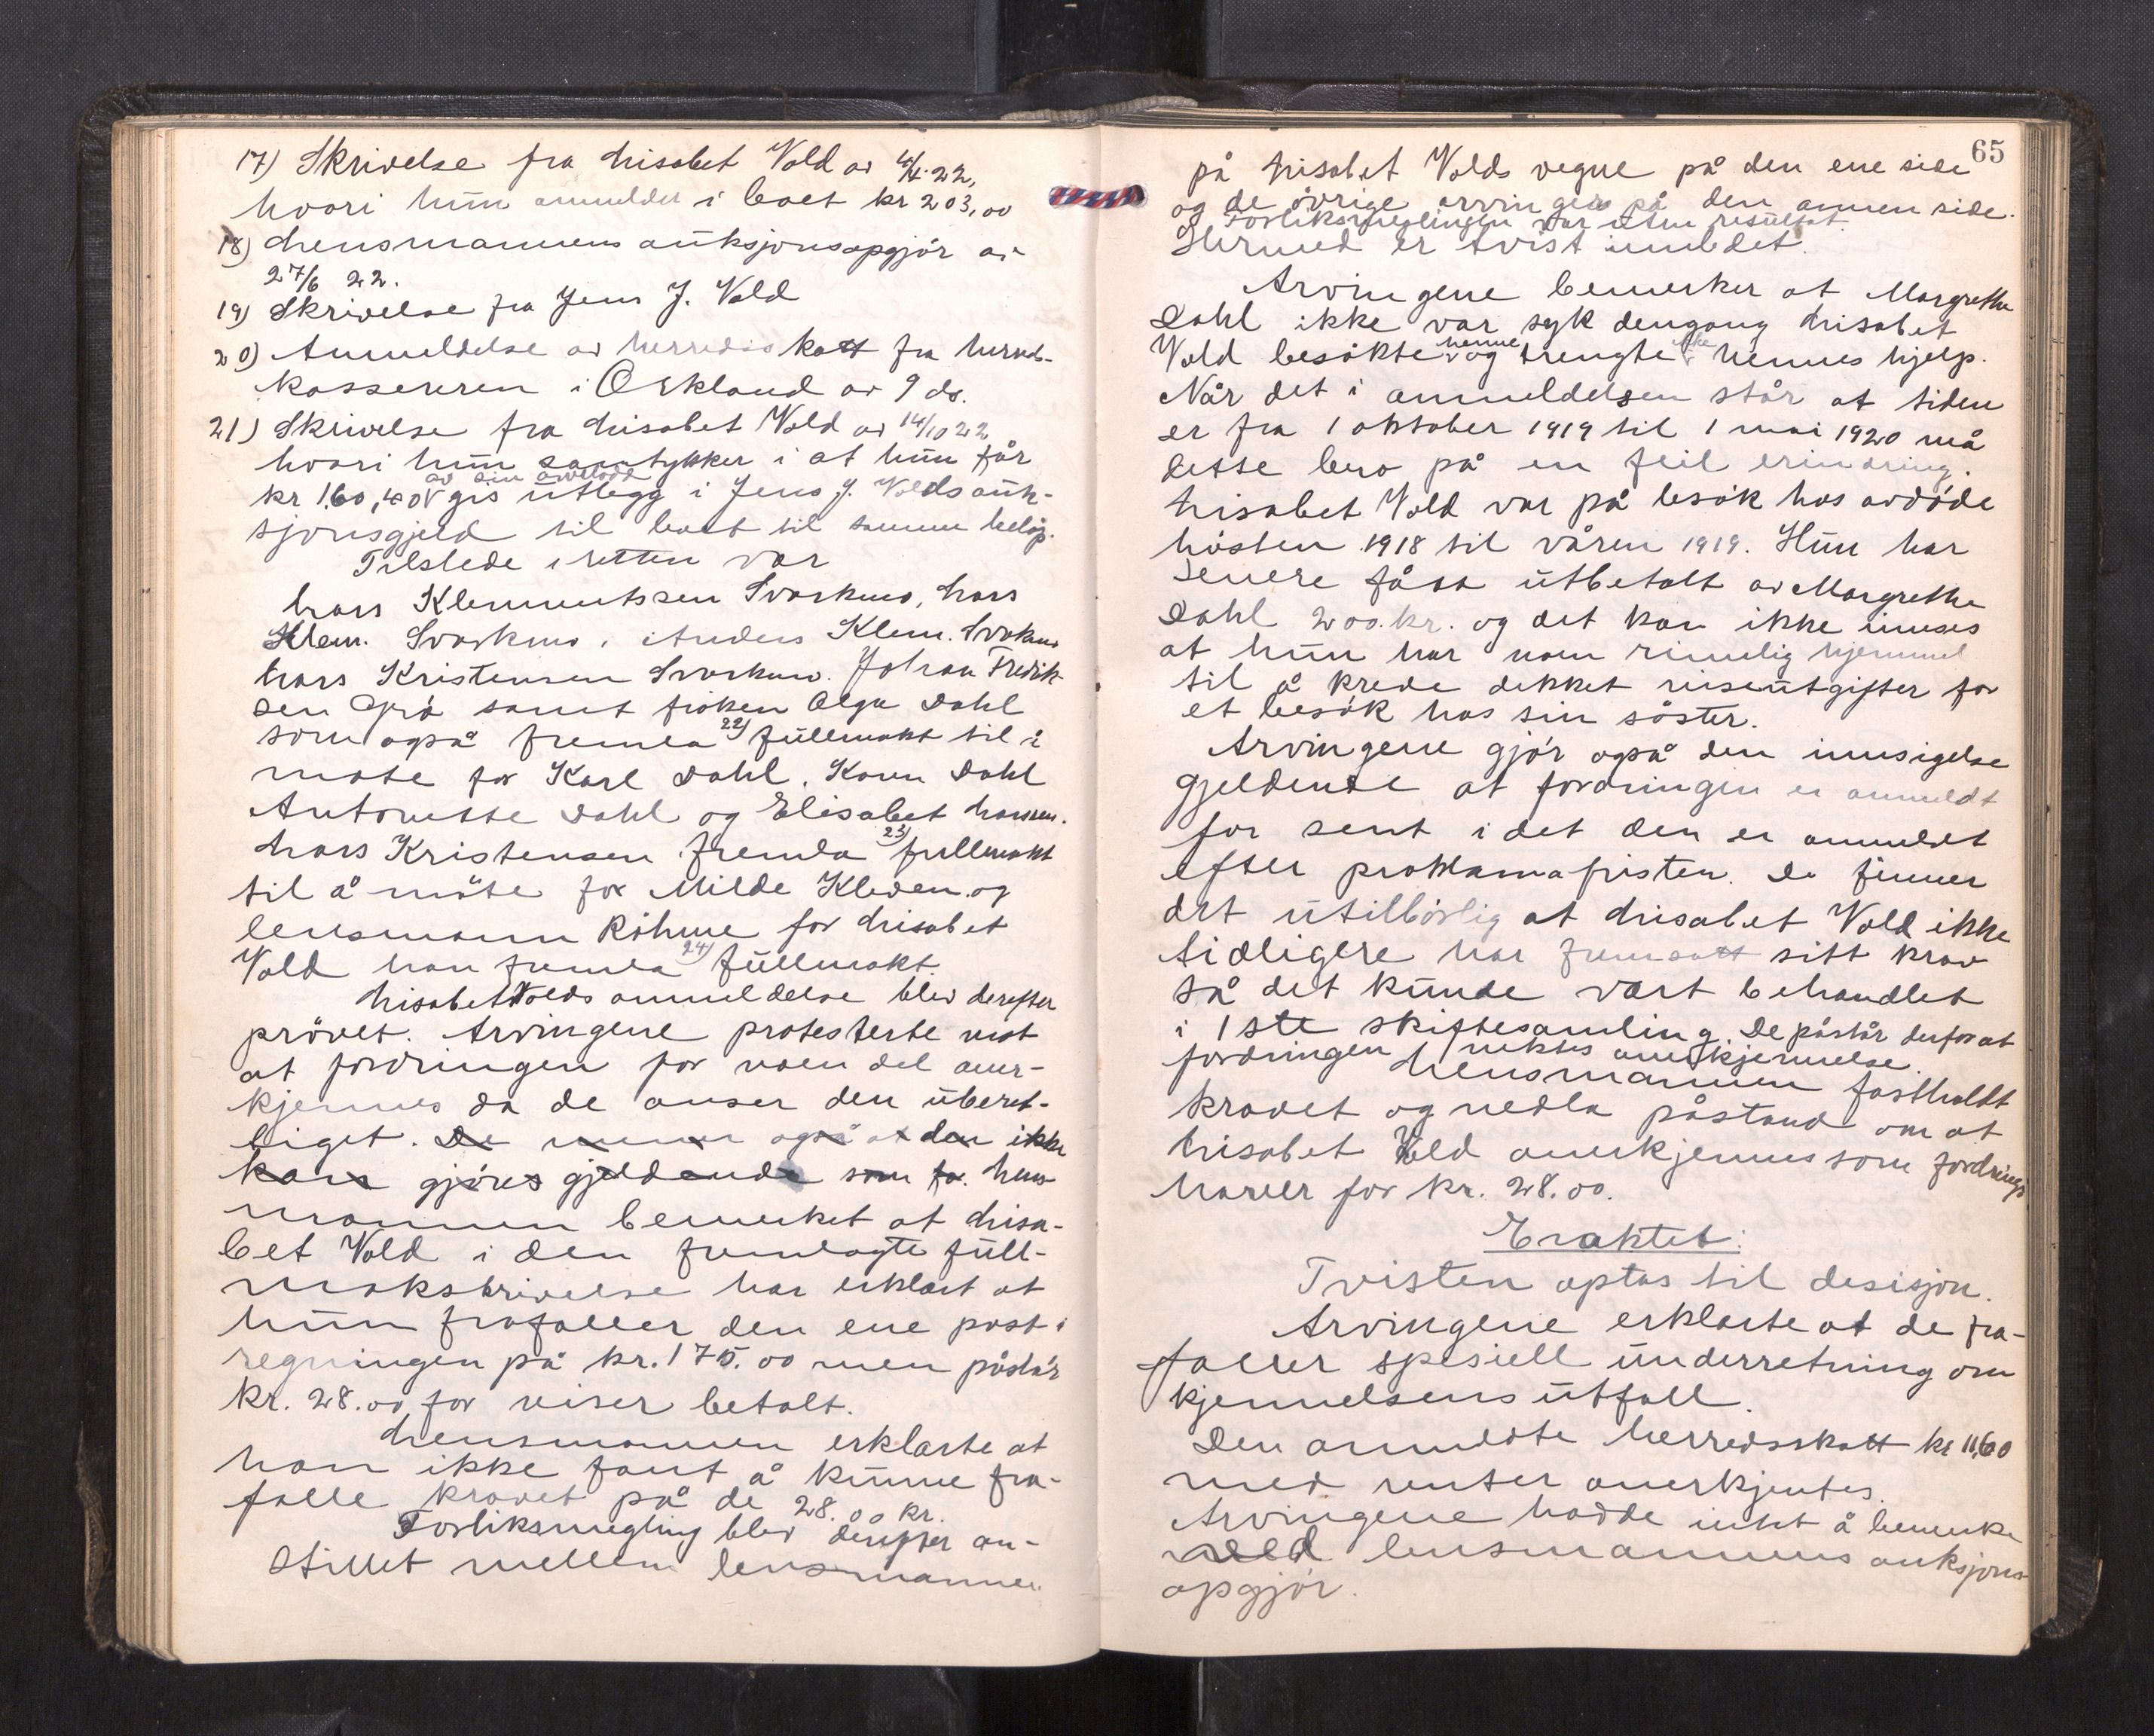 17) Skrivelse fra Lisabet Vold av 4/4.22,
hvori hun anmelder i boet kr 203,00
18) Lensmannens auksjonsopgjör av
27/6 22.
19) Skrivelse fra Jens J. Vold
20) Anmeldelse av herredsskatt fra herreds-
kassereren i Orkland av 9 ds.
21) Skrivelse fra Lisabet Vold av 14/10 22
hvori hun samtykker i at hun får
av sin arvelodd
kr 160,40 gis utlegg i Jens J. Volds auk-
sjonsgjeld til boet til samme belöp.
Tilstede i retten var
Lars Klemmetsen Svorkmo, Lars
Klem. Svorkmo, Anders Klem. Svorkmo
Lars Kristensen Svorkmo. Johan Fredrik-
sen Grö samt fröken Olga Dahl
som også fremla 22) fullmakt til å
möte for Karl Dahl, Karen Dahl
Antonette Dahl og Elisabet Larsen.
Lars Kristensen fremla 23) fullmakt
til å möte for Milde Kleven og
lensmann Röhme for Lisabet
Vold han fremla 24) fullmakt.
Lisabet Volds anmeldelse blev derefter
prövet. Arvingene protesterte mot
at fordringen for noen del aner-
kjennes da de anser den uberet-
tiget. De mener også at den ikke
kan gjöres gjeldende som for. Lens-
mannen bemerket at Lisa-
bet Vold i den fremlagte full-
makskrivelse har erklært at
hun frafaller den ene post i
regningen på kr. 175.00 men påstår
kr. 28.00 for reiser betalt.
Lensmannen erklærte at
han ikke fant å kunne fra-
falle kravet på de 28.00 kr.
Forliksmegling blev derefter an-
stillet mellem lensmannen
65
på Lisabet Volds vegne på den ene side
og de övrige arvinger på den annen side.
Forliksmeglingen var uten resultat.
Hermed er tvist innledet.
Arvingene bemerker at Margrethe
Dahl ikke var syk dengang Lisabet
Vold besökte henne og trengte ikke hennes hjelp.
Når det i anmeldelsen står at tiden
er fra 1 oktober 1919 til 1 mai 1920 må
dette bero på en feil erindring.
Lisabet Vold var på besök hos avdöde
hösten 1918 til våren 1919. Hun har
senere fått utbetalt av Margrethe
Dahl 200.kr. og det kan ikke innses
at hun har noen rimelig hjemmel
til å kreve dekket reiseutgifter for
et besök hos sin söster.
Arvingene gjör også den innsigelse
gjeldende at fordringen er anmeldt
for sent idet den er anmeldt
efter proklamafristen. De finner
det utilbörlig at Lisabet Vold ikke
tidligere har fremsatt sitt krav
så det kunde vært behandlet
i 1ste skiftesamling. De påstår derfor at
fordringen nektes anerkjennelse.
Lensmannen fastholdt
kravet og nedla påstand om at
Lisabet Vold anerkjennes som fordrings-
haver for kr. 28.00.
Eraktet:
Tvisten optas til desisjon.
Arvingene erklærte at de fra-
faller spesiell underretning om
kjennelsens utfall.
Den anmeldte herredsskatt kr 11,60
med renter anerkjentes.
Arvingene hadde intet å bemerke
ved lensmannens auksjons-
opgjör.